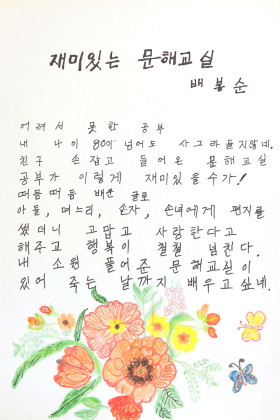 재미있는 문해교실
배봉순
어려서 못한 공부
내 나이 80이 넘어도 사그라들지않네.
친구 손잡고 들어온 문해교실
공부가 이렇게 재미있을수가!
떠듬떠듬 배운 글로
아들, 며느리, 손자, 손녀에게 편지를
썼더니 고맙고 사랑한다고
해주고 행복이 철철 넘친다.
내 소원 풀어준 문해교실이
있어 죽는 날까지 배우고싶네.